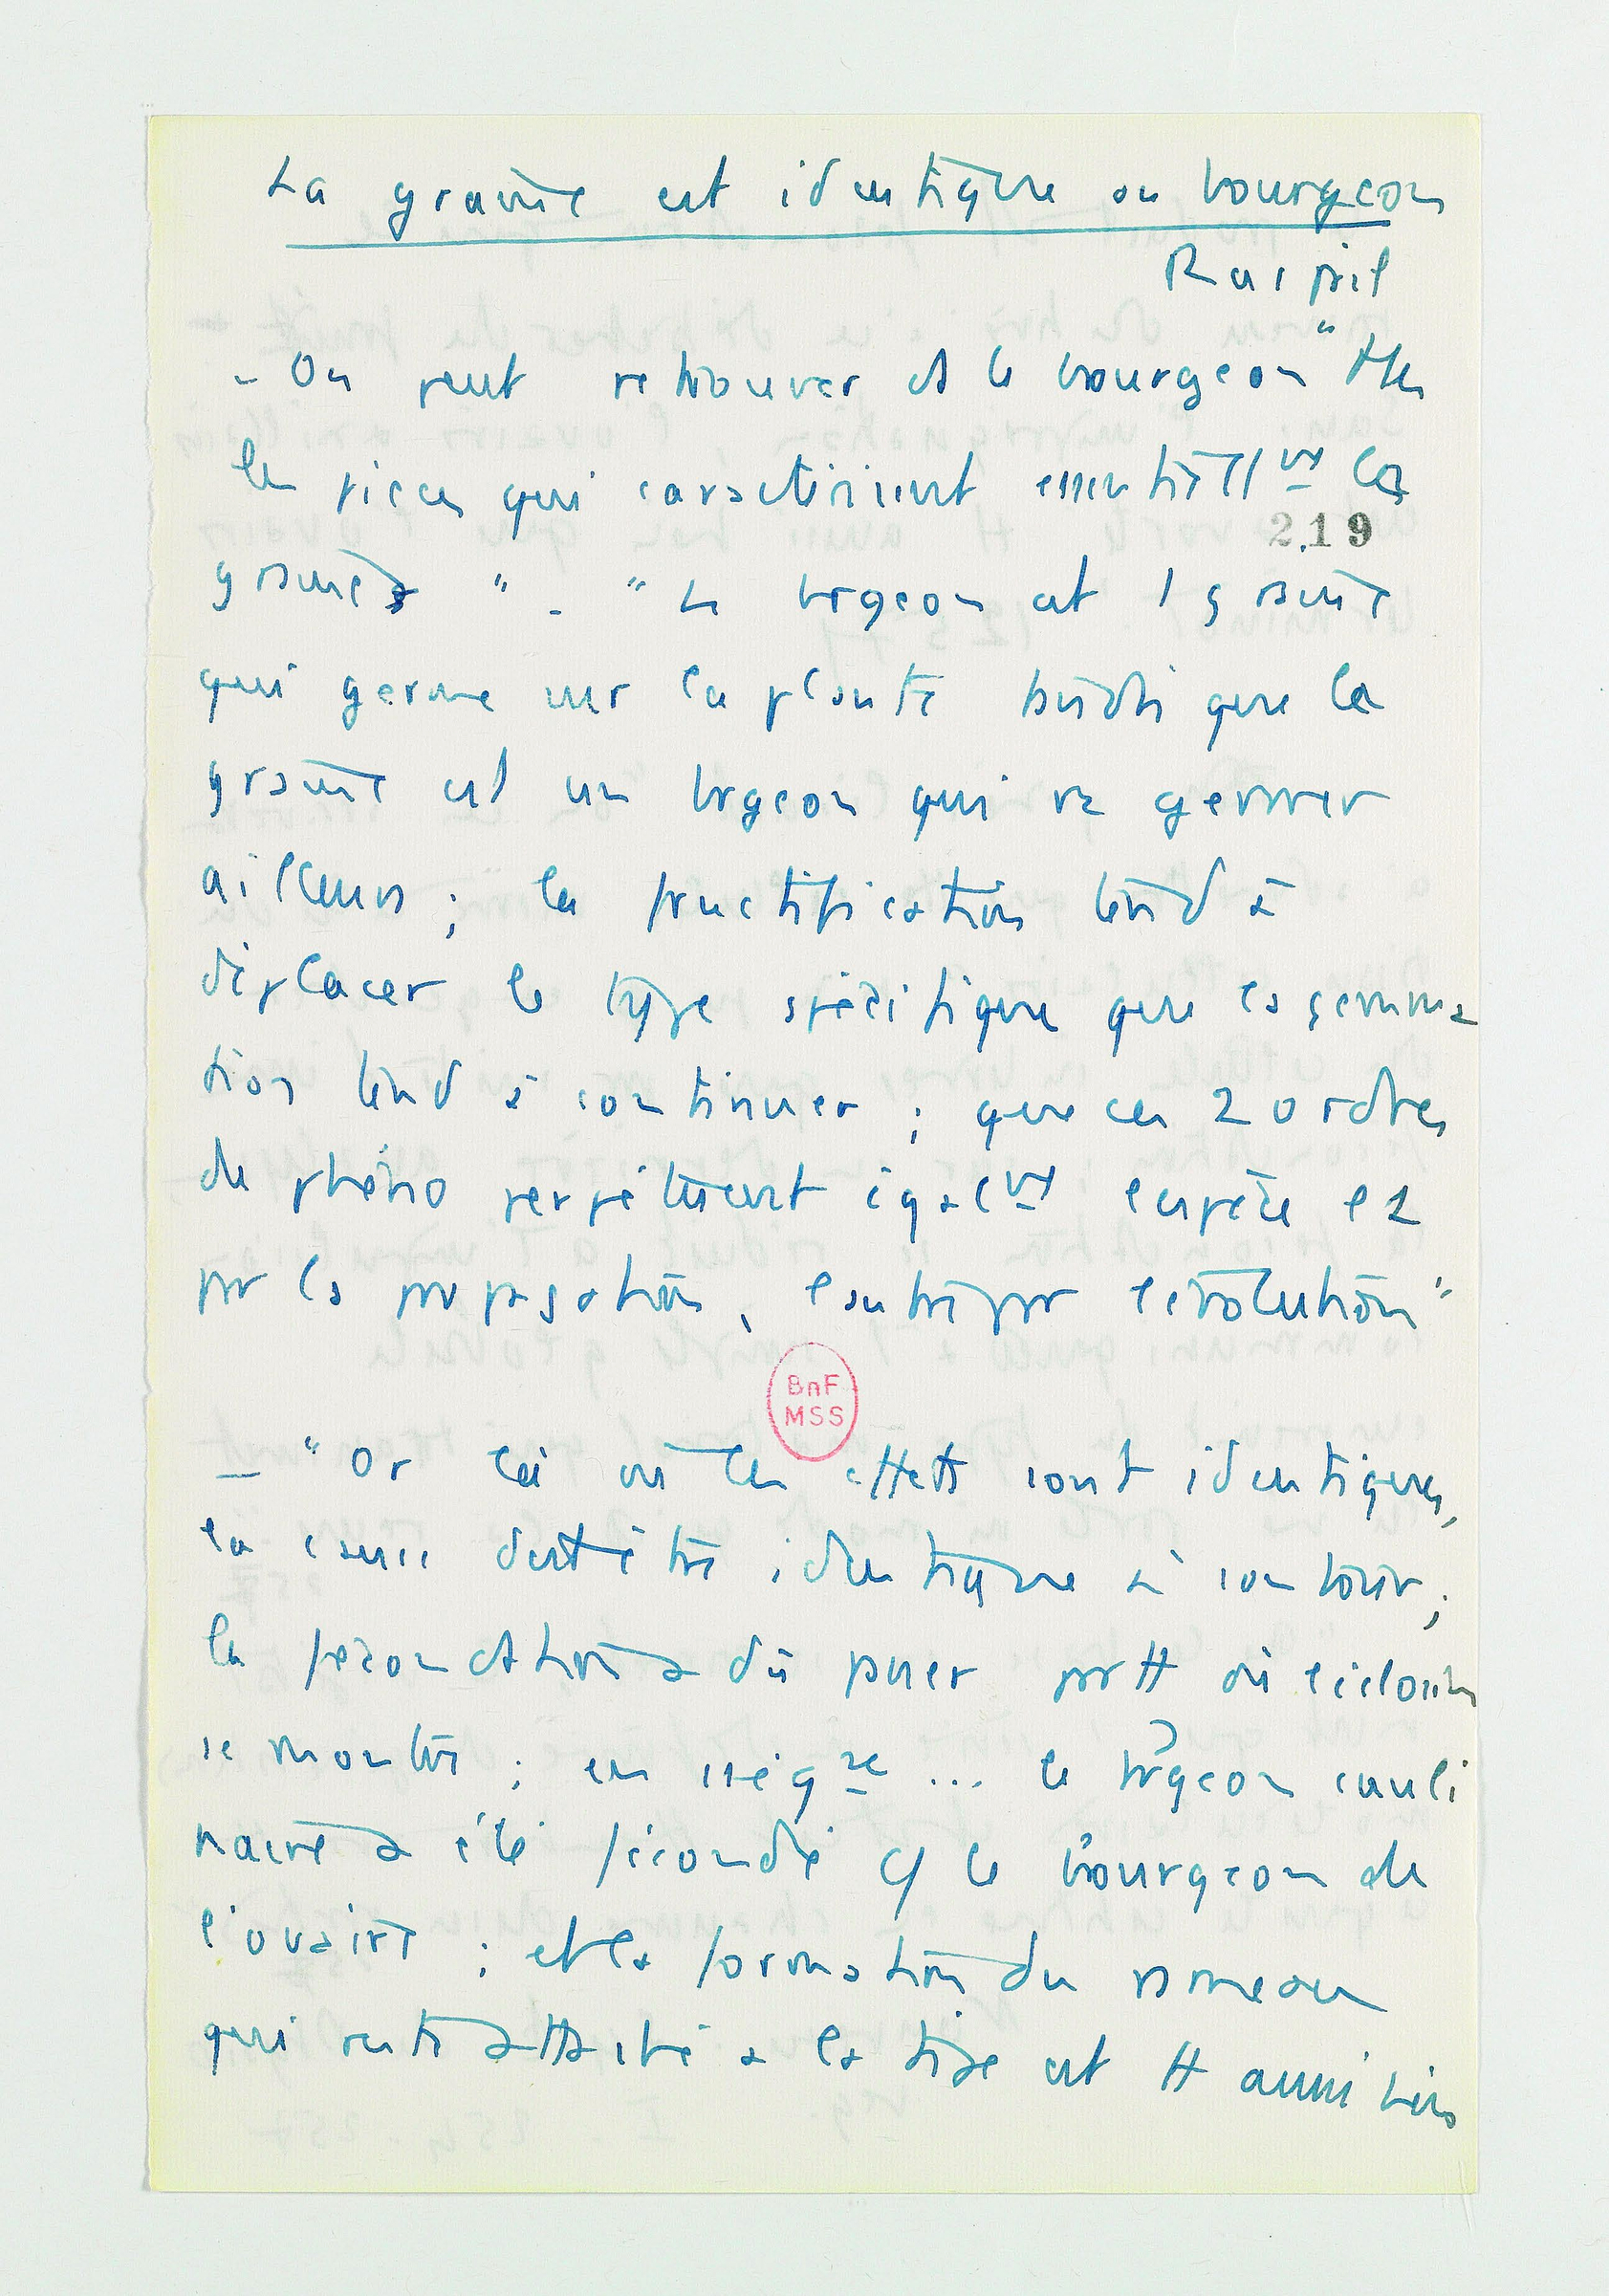 La graine est identique au bourgeon
Raspail
- On peut retrouver ds le bourgeon "ttes
les pièces qui caractérisent essentiellt les
219
graines" - "Le brgeon est 1 graine
qui germe sur la plante tandis que la
graine est un brgeon qui va germer
ailleurs ; la fructification tend à
déplacer le type spécifique que la gemma
tion tend à continuer ; que ces 2 ordres
de phéno perpétuent égalt l'espèce l'1
pr la propagation, l'autre pr l'évolution"
BnF
MSS
- "Or là où les effets sont identiques,
la cause doit être identique à son tour ;
la fécondation a dû passer prtt où l'éclosion
se montre ; en conséqce ... le brgeon cauli
naire a été fécondé cf le bourgeon de
l'ovaire ; et la formation du rameau
qui reste attaché à la tige est tt aussi bien